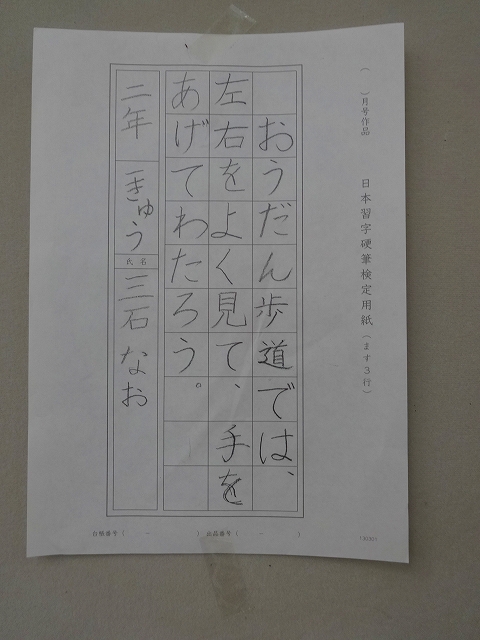 （　　）月号作品　日本習字硬筆検定用紙（ます３行）
おうだん歩道では、
左右をよく見て、手を
あげてわたろう。
二年　一きゅう　氏名　三石なお
台帳番号（　－　）　出品番号（　－　）
130301